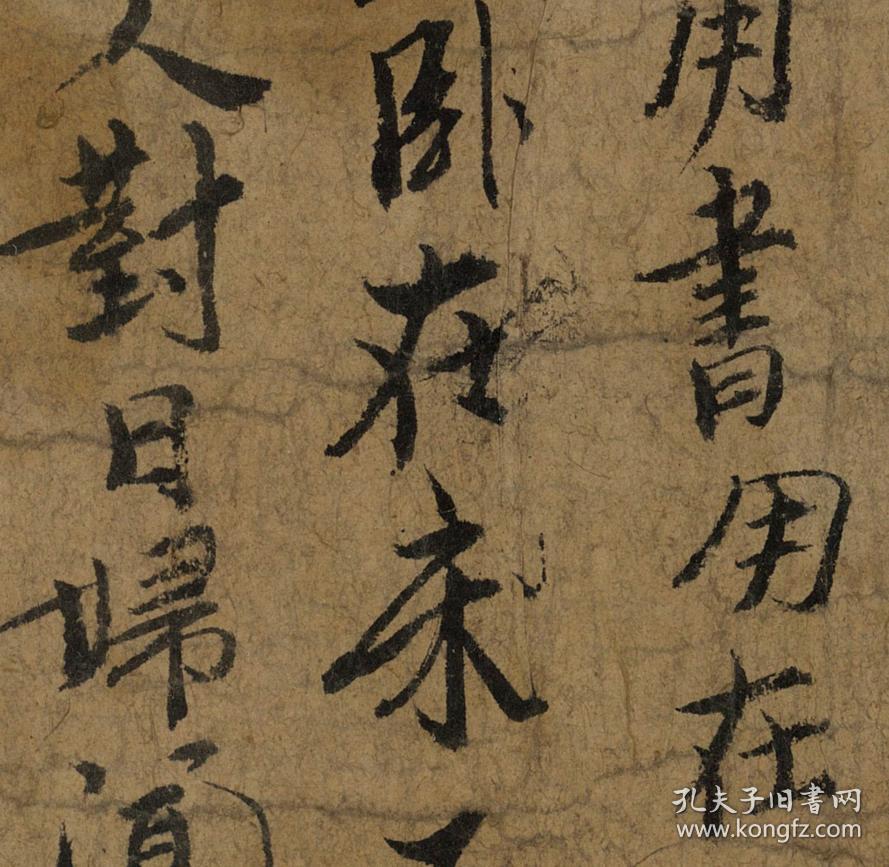 用書用在
臥在床
對曰婦
孔夫子旧书网
www.kongfz.com